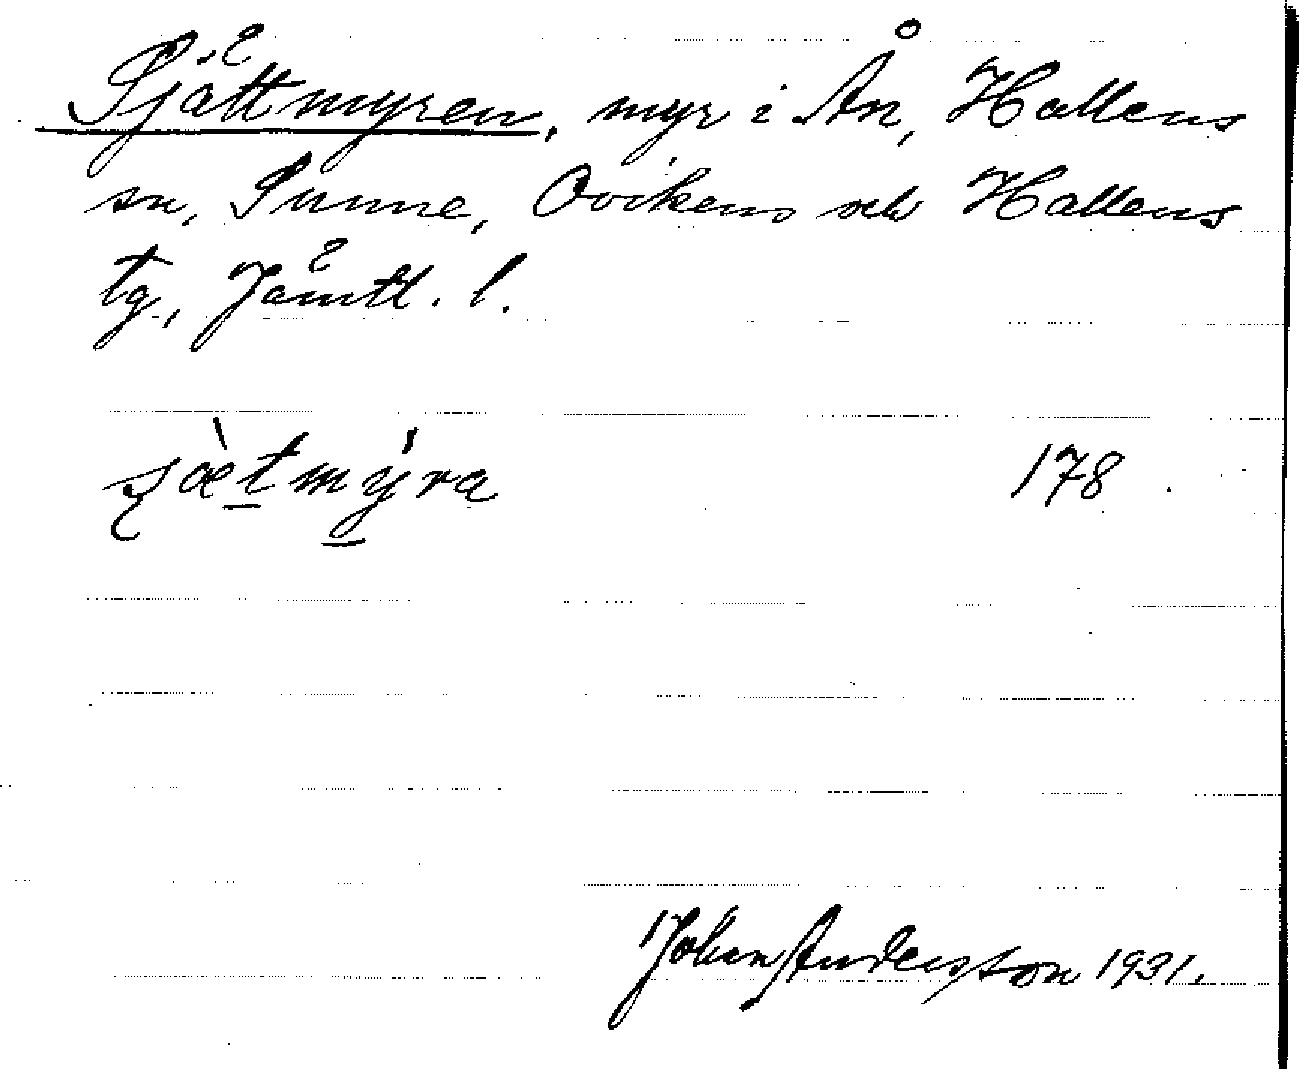 Sjättmyren, myr i Ån, Hallens
sn, Sunne, Ovikens och Hallens
tg, Jämtl. l.
178
John Andersson 1931.